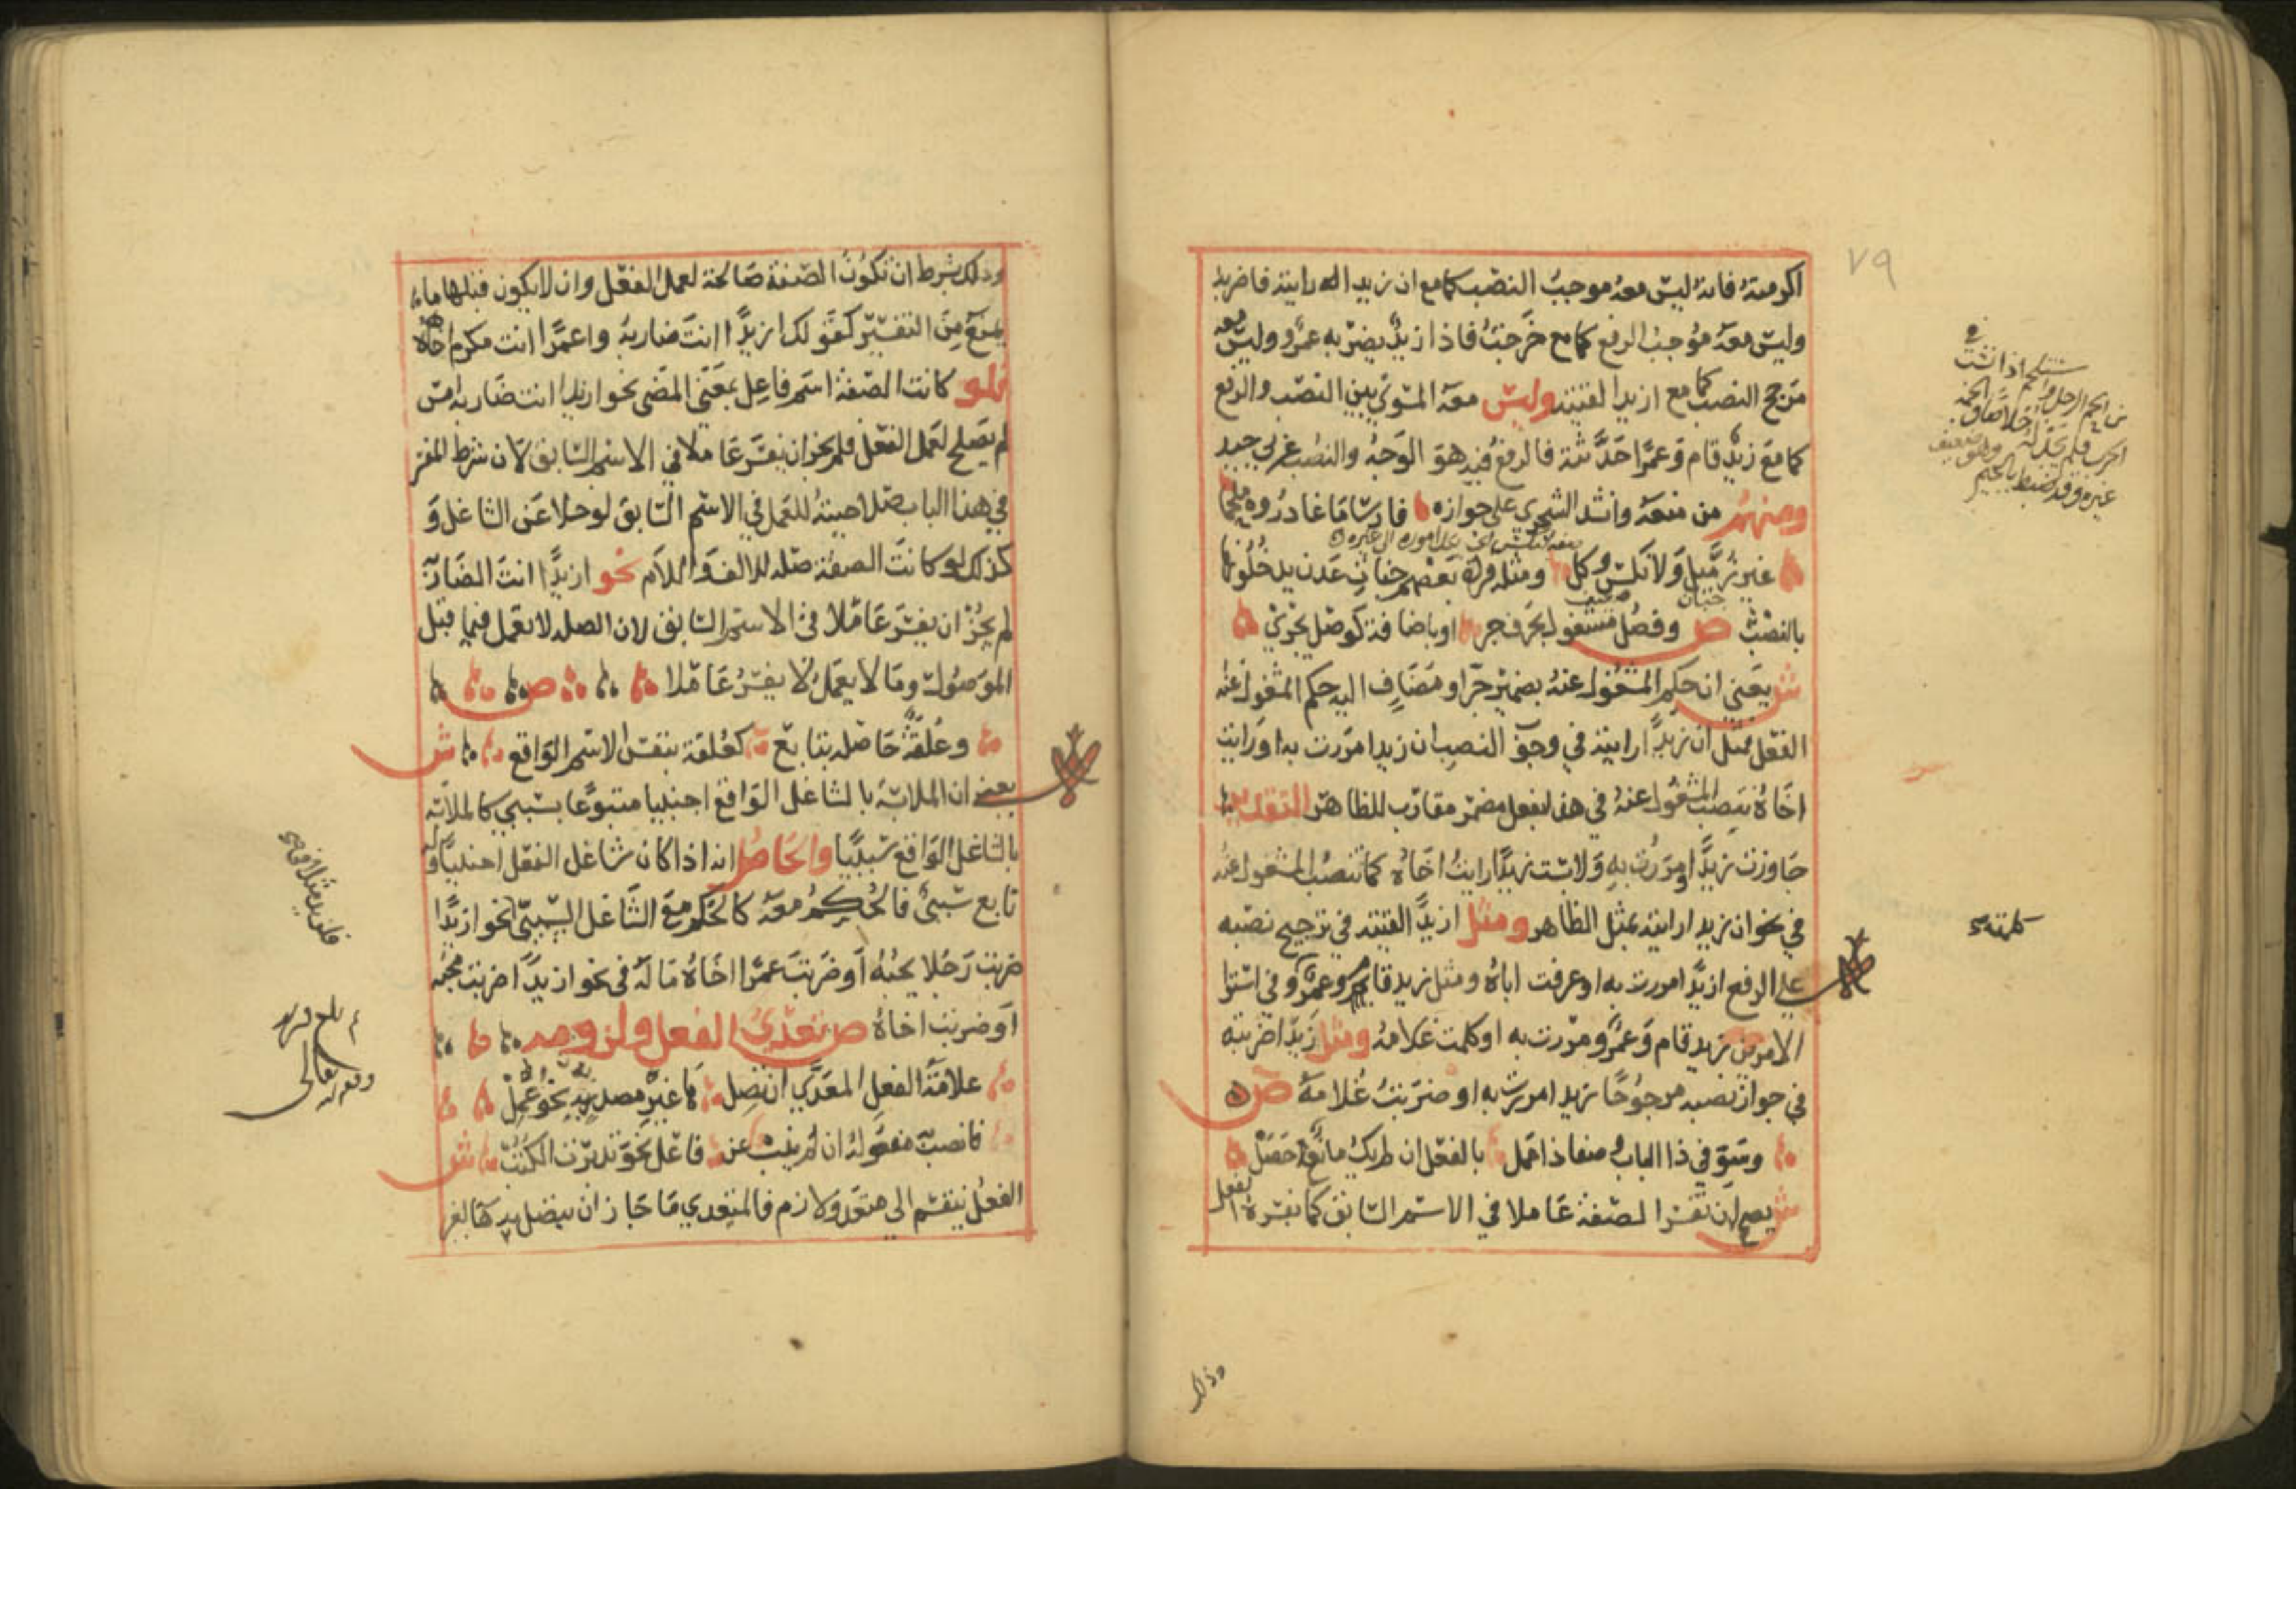 ٧٩
اكرمته فانه ليس معه موجب النصب كما مع ان زيدا رايته فاضربه
وليس معه موجب الرفع كما مع خرجت فاذا زيد يضربه عمرو وليس معه
مرجح النصب كما مع ازيدا لقيته وليس معه المسوي بين النصب والرفع
كما مع زيد قام وعمرا حدثته فالرفع فيه هو الوجه والنصب عربي جيد
ومنهم من منعه وانشد الشجري على جوازه فارسا ما غادروه ملحما
غير زميل ولا نكس وكل ومثله قراة بعضهم جنات عدن يدخلونها
بالنصب ص وفصل مشغول بحرف جر او باضافة كوصل يجري
ش يعني ان حكم المشغول عنه بضمير جر او مضاف اليه حكم المشغول عنه
الفعل مثل ان زيدا رايته في وجوب النصب ان زيدا مررت به او رايت
اخاه تنصب المشغول عنه في هذا بفعل مضمر مقارب للظاهر التقدير
جاوزت زيدا مررت به ولابست زيدا رايت اخاه كما تنصب المشغول عنه
في نحو ان زيدا رايته بمثل الظاهر ومثل ازيدا لقيته في ترجيح نصبه
على الرفع ازيدا مررت به او عرفت اباه ومثل زيد قام وعمرو في استوا
الامرين زيد قام وعمرو مررت به او كلمت غلامه ومثل زيدا ضربته
في جواز نصبه مرجوحا زيد امررت به او ضربت غلامه ص
وسو في ذا الباب وصفا ذا عمل بالفعل ان لم يك مانع حصل
ش يصح ان تفسر الصفة عاملا في الاسم السابق كما يفسره الفعل
وذلك
وذلك بشرط ان تكون الصفة صالحة لعمل الفعل وان لا يكون قبلها ما
يمنع من التفسير كقولك ازيدا انت ضاربه واعمرا انت مكرم اخاه
فلو كانت الصفة اسم فاعل بمعنى المضي نحو ازيدا انت ضاربه امس
لم يصلح لعمل الفعل فلم يجز ان يفسر عاملا في الاسم السابق لان شرط المفسر
في هذا الباب صلاحيته للعمل في الاسم السابق لو خلا عن الشاغل و
كذلك لو كانت الصفة صلة للالف واللام نحو ازيدا انت الضاربه
لم يجز ان يفسر عاملا في الاسم السابق لان الصلة لا تعمل فيما قبل
الموصول وما لا يعمل لا يفسر عاملا ص
وعلقة حاصلة بتابع كعلقة بنفس الاسم الواقع ش
يعني ان الملابسة بالشاغل الواقع اجنبيا متبوعا بسببي كالملابسة
بالشاغل الواقع سببيا والحاصل انه اذا كان شاغل الفعل اجنبيا وله
تابع سببي فالحكم معه كالحكم مع الشاغل السببي نحو ازيدا
ضربت رجلا يحبه او ضربت عمرا اخاه ماله في نحو ازيدا ضربت محبه
او ضربت اخاه ص تعدي الفعل ولزومه
علامة الفعل المعدي ان تصل ها غير مصدر به نحو عمل
فانصب به مفعوله ان لم ينب عن فاعل نحو تدبرت الكتب ش
الفعل ينقسم الى متعد ولازم فالمتعدي ما جاز ان يتصل به ها لغير